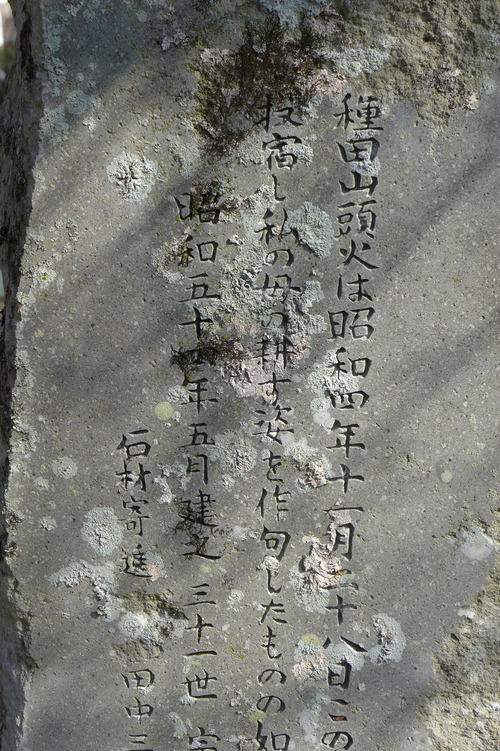 種田山頭火は昭和四年十一月二十八日この
投宿し私の母の耕す姿を作句したものの如
昭和五十四年五月建之 三十一世 宗
石材寄進 田中三